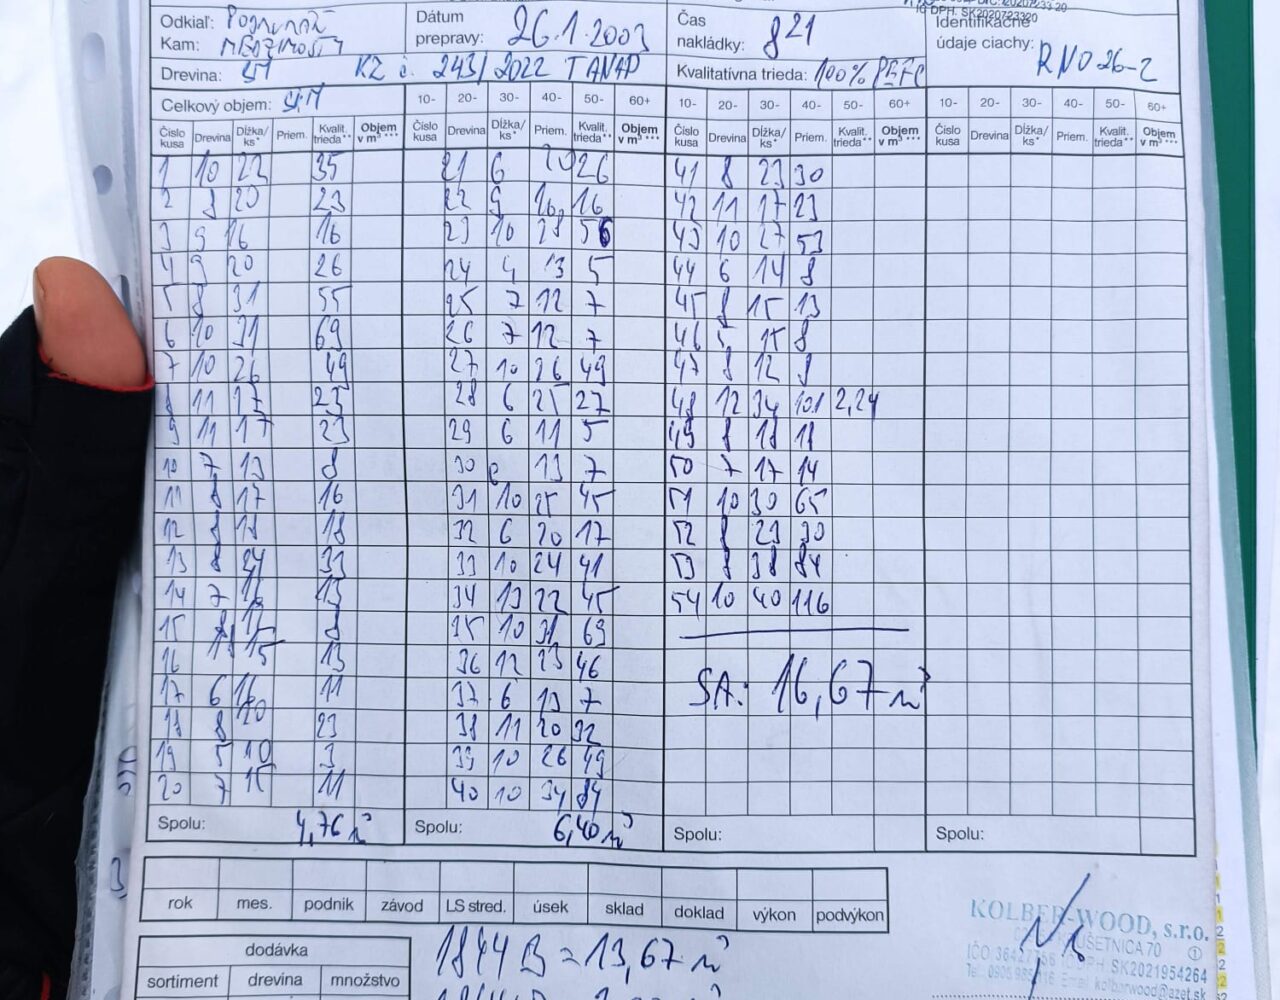 IČ DPH: SK2020723320
Odkiaľ:
Kam:
Dátum
prepravy: 26.1.2003
Čas
nakládky: 8 21
Identifikačné
údaje ciachy: RNO 26-2
Drevina: SM KZ č. 243/2022 TANAP
Kvalitatívna trieda: 100% PEFC
Celkový objem: SM 10- 20- 30- 40- 50- 60+ 10- 20- 30- 40- 50- 60+ 10- 20- 30- 40- 50- 60+
Číslo kusa Drevina Dĺžka/ ks* Priem. Kvalit. trieda** Objem v m³*** Číslo kusa Drevina Dĺžka/ ks* Priem. Kvalit. trieda** Objem v m³*** Číslo kusa Drevina Dĺžka/ ks* Priem. Kvalit. trieda** Objem v m³*** Číslo kusa Drevina Dĺžka/ ks* Priem. Kvalit. trieda** Objem v m³***
1 10 22 35 21 6 20 26 41 8 23 30
2 8 20 23 22 9 16 16 42 11 17 23
3 9 16 16 23 10 28 56 43 10 27 53
4 9 20 26 24 4 13 5 44 6 14 8
5 8 31 55 25 7 12 7 45 8 15 13
6 10 31 69 26 7 12 7 46 5 15 8
7 10 26 49 27 10 26 49 47 8 12 8
8 11 17 23 28 6 25 27 48 12 34 101 2,24
9 11 17 23 29 6 11 5 49 8 18 18
10 7 13 8 30 13 7 50 7 17 14
11 8 17 16 31 10 25 45 51 10 30 65
12 8 18 18 32 6 20 17 52 8 23 30
13 8 24 33 33 10 24 41 53 8 38 84
14 7 16 13 34 13 22 45 54 10 40 116
15 8 8 35 10 31 69
16 15 13 36 12 23 46
17 6 16 11 37 6 13 7
18 8 20 23 38 11 20 32
19 5 10 3 39 10 26 49
20 7 15 11 40 10 34 84
SA: 16,67 m³
Spolu: 4,76 m³ Spolu: 6,40 m³ Spolu: Spolu:
rok mes. podnik závod LS stred. úsek sklad doklad výkon podvýkon
KOLBER-WOOD, s.r.o.
dodávka
1844 B = 13,67 m³
sortiment drevina množstvo